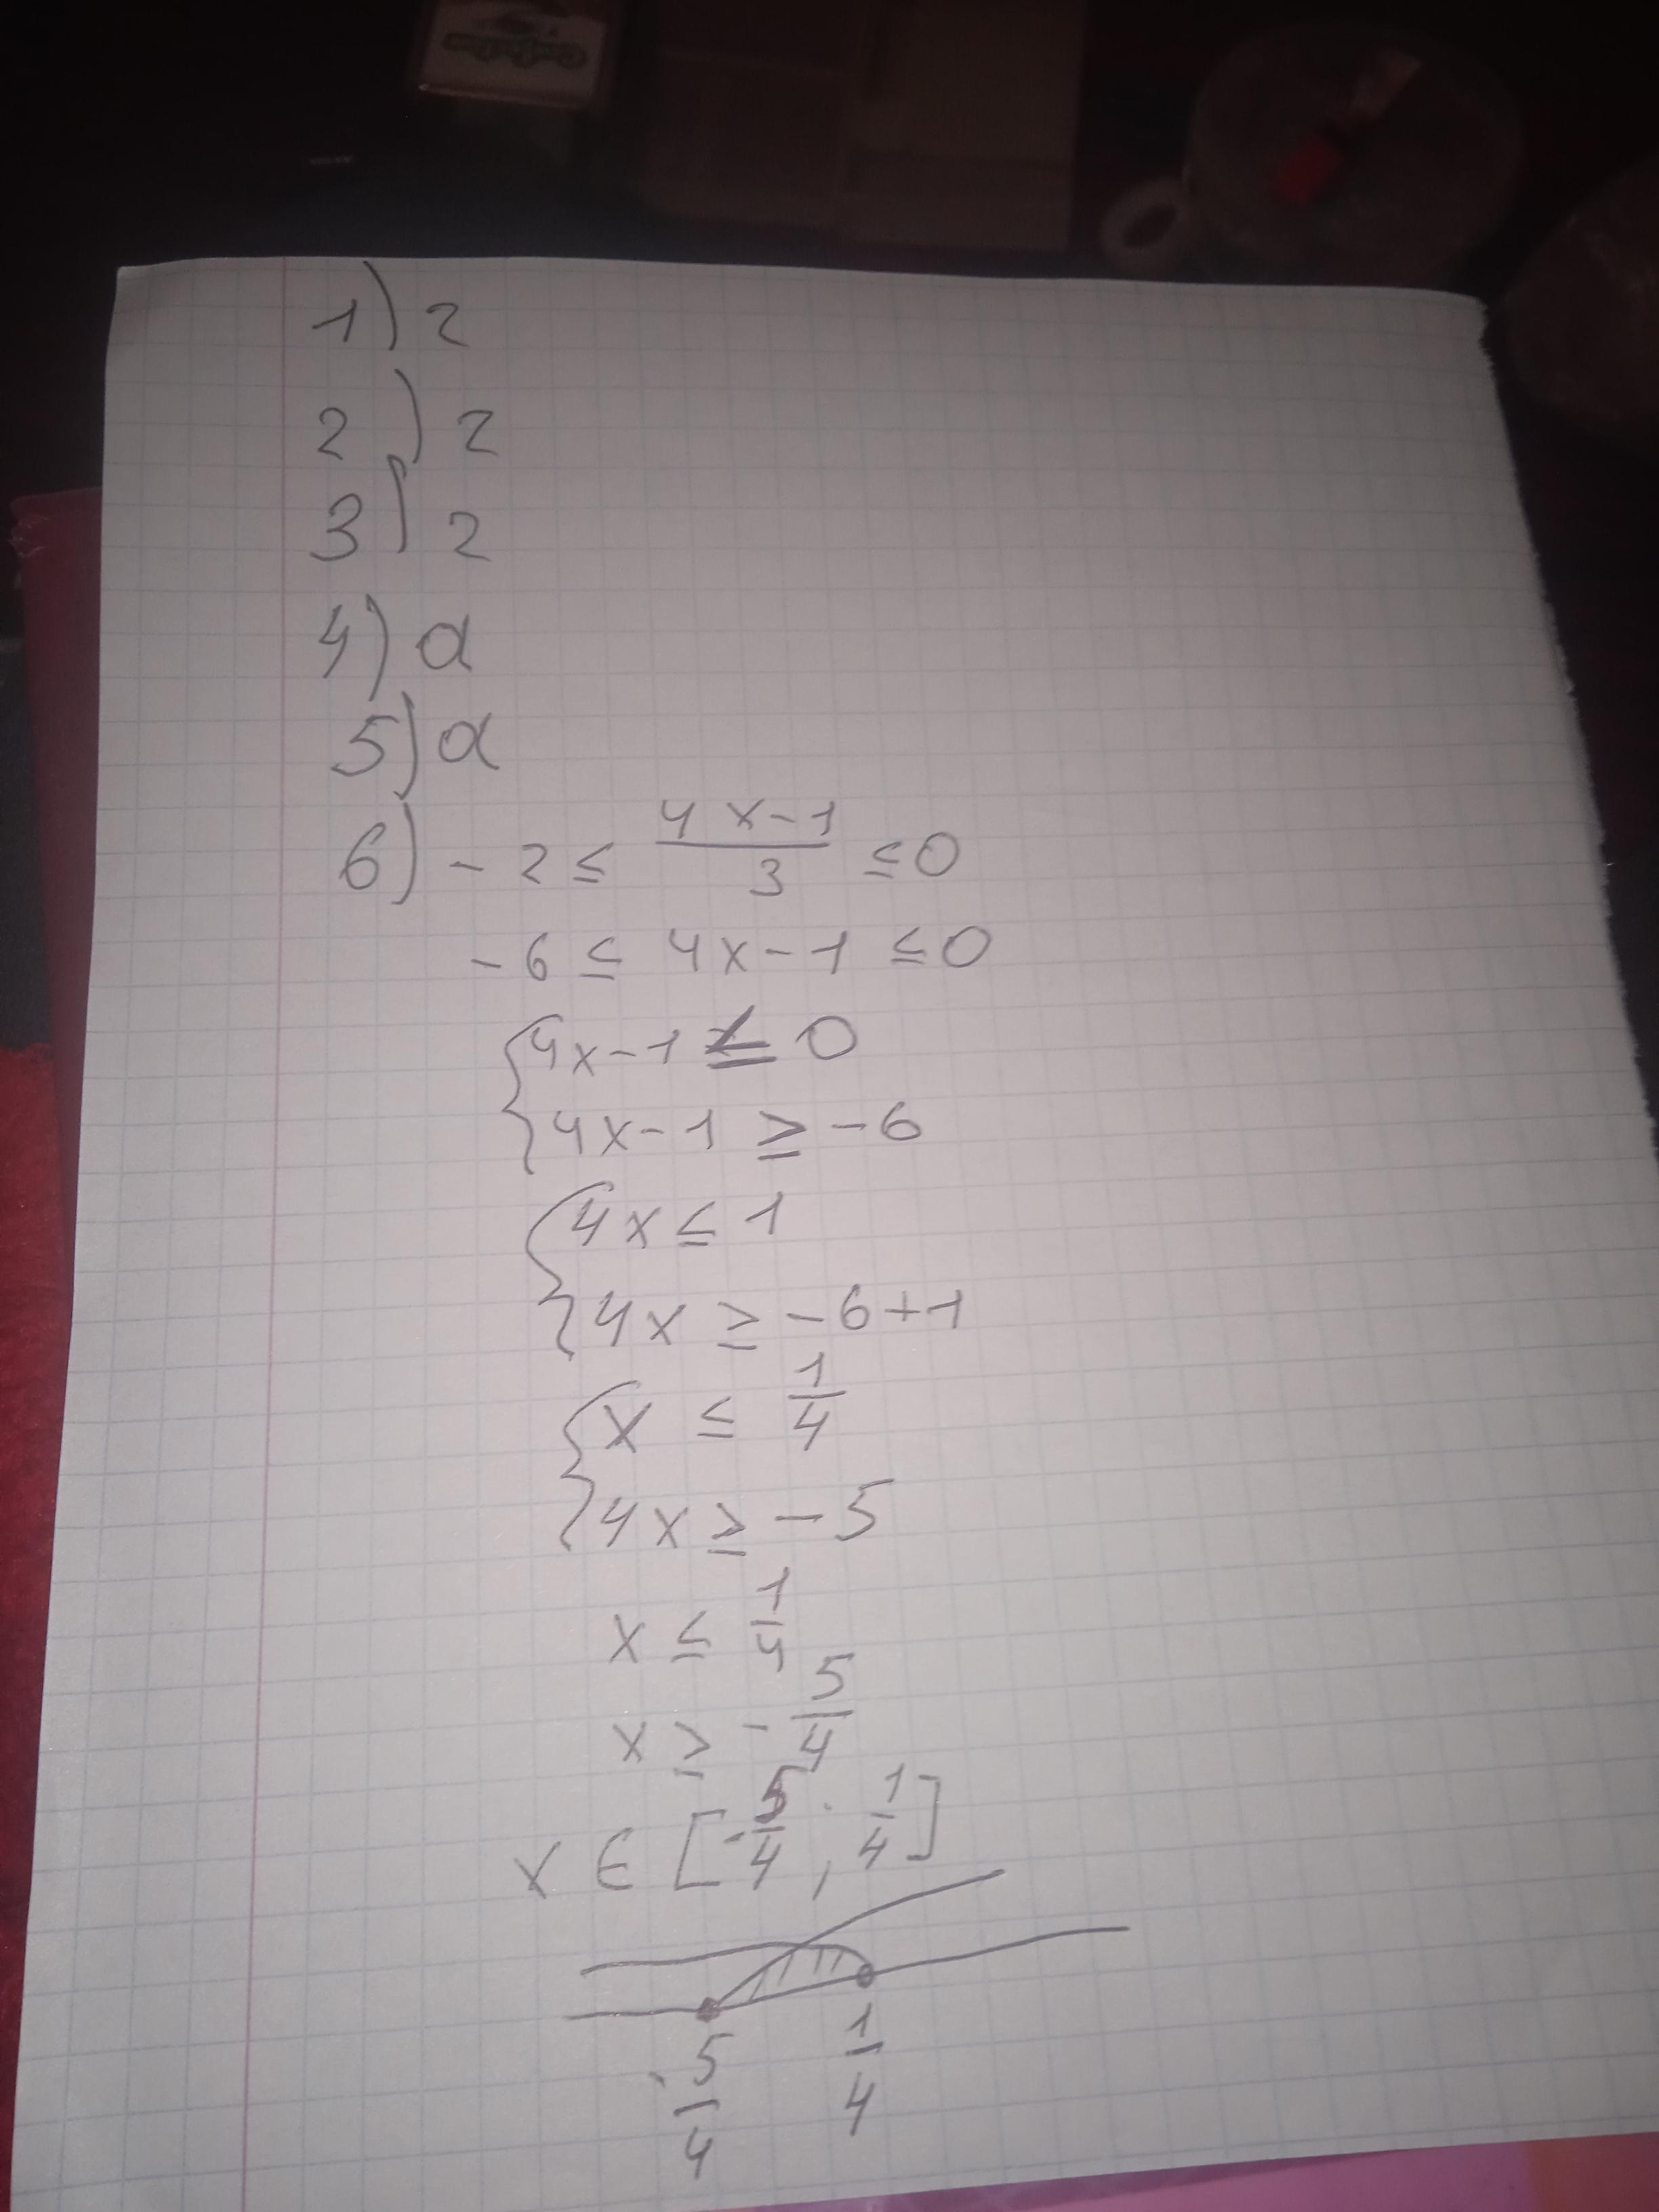 1) г
2) г
3) г
4) а
5) а
6) - 2 ≤ (4x-1)/3 ≤ 0
- 6 ≤ 4x - 1 ≤ 0
{4x - 1 ≤ 0
4x - 1 ≥ - 6
{4x ≤ 1
4x ≥ - 6 + 1
{x ≤ 1/4
4x ≥ - 5
x ≤ 1/4
x ≥ - 5/4
x ∈ [-5/4, 1/4]
-5/4 1/4